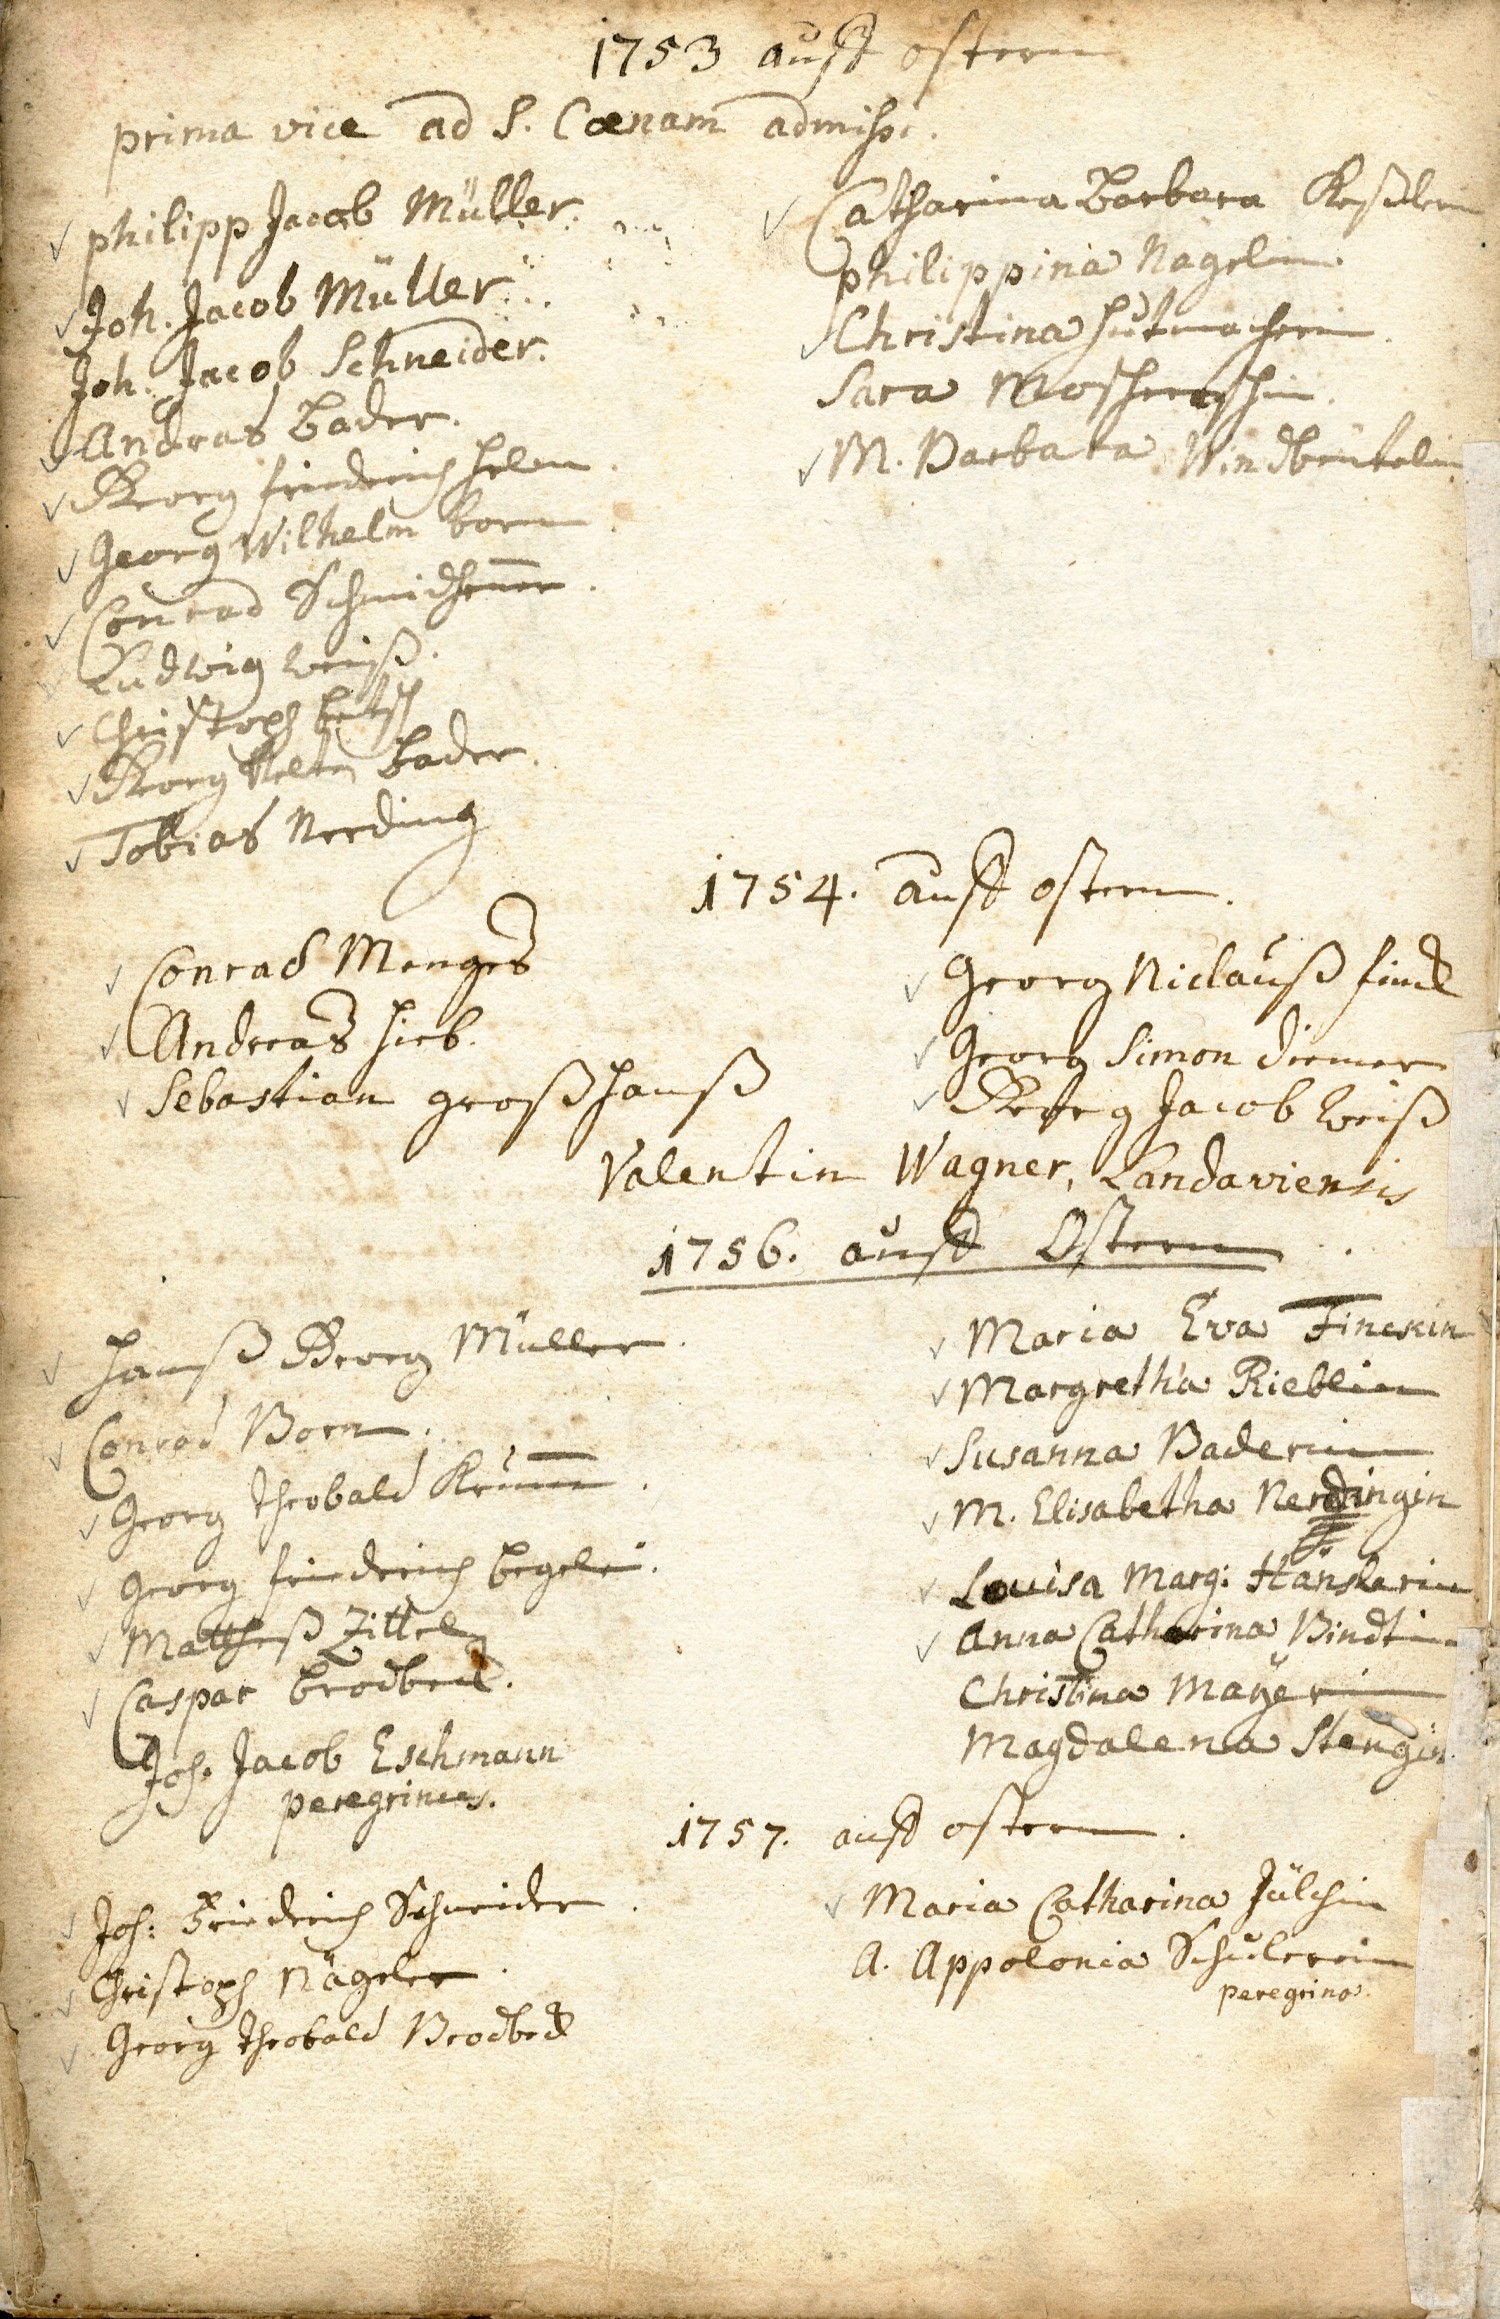 1753 auff ostern
prima vice ad S. Coenam admissi.
philipp Jacob Müller.
Joh. Jacob Müller.
Joh. Jacob Schneider.
Andreas Bader.
Georg friedrich
Georg Wilhelm born
Conrad
Ludwig weiß.
Christoph
Georg Velten Bader.
Tobias Nerding
Catharina Barbara Keßlerin
philippina Nagelin.
Christina hutmacherin.
Sara
M. Barbara Windbeutelin
1754. auff ostern.
Conrad Menges
Andreas hieb.
Sebastian großhanß
Georg Niclauß finck
Georg Simon diemer
Georg Jacob weiß
Valentin Wagner, Landaviensis
1756. auff Ostern.
Hanß Georg Müller.
Conrad Born.
Georg theobald Krum̄.
Georg friedrich
Mattheß Zittel
Caspar brodbeck.
Joh. Jacob Eschmann
peregrinus.
Maria Eva Finckin
Margretha Rieblin
Susanna Baderin
M. Elisabetha Nerdingin
Louisa Marg: Hänslerin
Anna Catharina Bindtin
Christina Mayerin
Magdalena Stengin
1757. auff ostern.
Joh: Friedrich Schneider.
Christoph Nägeler.
Georg theobald Brodbeck
Maria Catharina Jülchin
A. Appolonia Schulerin
peregrina.